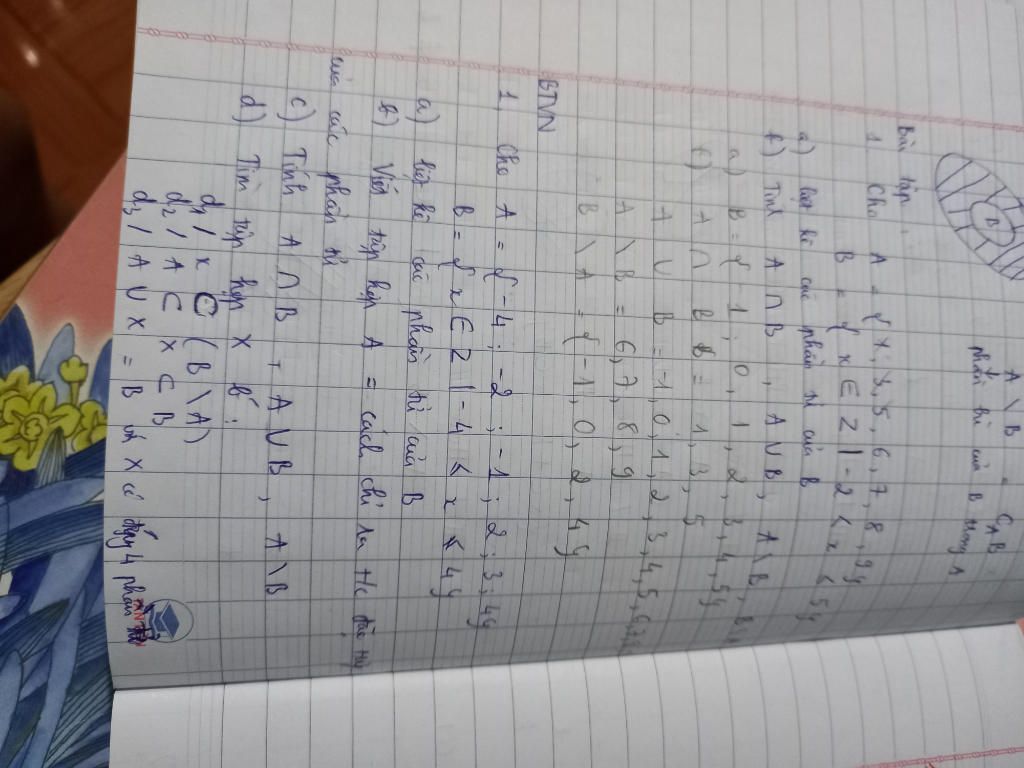 A \ B = C_A B
phần bù của B trong A
B
Bài tập:
1. Cho A = { 1; 3, 5, 6, 7, 8, 9}
B = { x ∈ Z | -2 < x < 5}
a) liệt kê các phần tử của B
b) Tính A ∩ B, A ∪ B, A \ B,
a) B = { -1; 0, 1, 2, 3, 4, 5}
A ∩ B = 1, 3, 5
A ∪ B = -1, 0, 1, 2, 3, 4, 5, 6, 7
A \ B = 6, 7, 8, 9
B \ A = { -1, 0, 2, 4}
BTVN
1. Cho A = { -4; -2; -1; 2; 3; 4}
B = { x ∈ Z | -4 ≤ x ≤ 4}
a) liệt kê các phần tử của B
b) Viết tập hợp A = cách chỉ ra t/c đặc
của các phần tử
c) Tính A ∩ B, A ∪ B, A \ B
d) Tìm tập hợp X :
d1/ X ⊂ (B \ A)
d2/ A ⊂ X ⊂ B
d3/ A ∪ X = B và X có đúng 4 phần tử